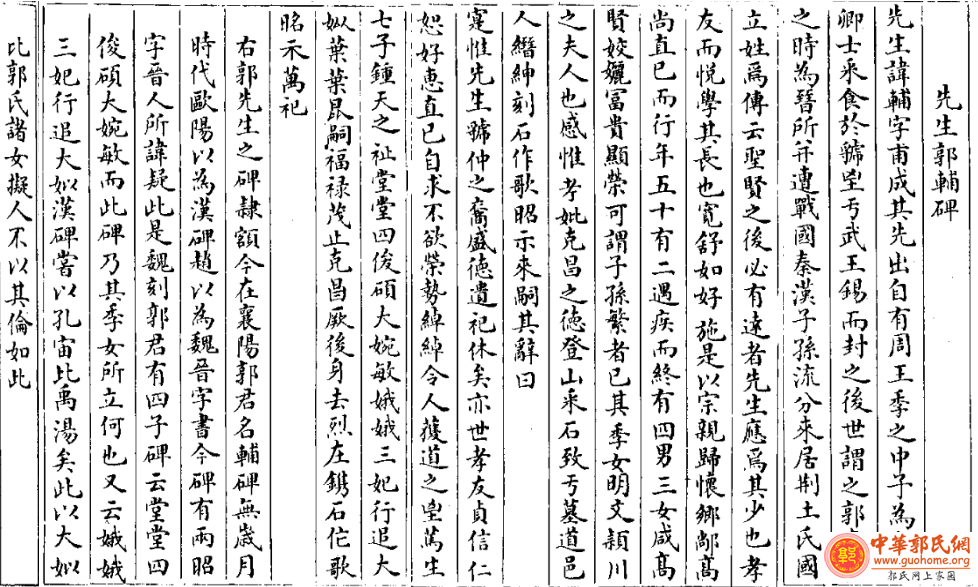 先生郭輔碑
先生諱輔字甫成其先出自有周王季之中子為
卿士采食於虢至于武王錫而封之後世謂之郭
之時為晉所并遭戰國秦漢子孫流分來居荆土氏國
立姓爲傳云聖賢之後必有達者先生應爲其少也孝
友而悦學其長也寛舒如好施是以宗親歸懷鄉鄰高
尚直已而行年五十有二遇疾而終有四男三女咸高
賢姣孋冨貴顯榮可謂子孫繁者已其季女明文潁川
之夫人也感惟考妣克昌之德登山采石致于墓道邑
人縉紳刻石作歌昭示來嗣其辭曰
寔惟先生虢仲之裔盛德遺祀休矣亦世孝友貞信仁
恕好惠直已自求不欲榮勢綽綽令人獲道之望篤生
七子鍾天之祉堂堂四俊碩大婉敏娥娥三妃行追大
姒葉葉昆嗣福禄茂止克昌厥後身去烈在鐫石佗歌
昭示萬祀
右郭先生之碑隷額今在襄陽郭君名輔碑無嵗月
時代歐陽以為漢碑趙以為魏晉字書今碑有兩昭
字晉人所諱疑此是魏刻郭君有四子碑云堂堂四
俊碩大婉敏而此碑乃其季女所立何也又云娥娥
三妃行追大姒漢碑嘗以孔宙比禹湯矣此以大姒
比郭氏諸女擬人不以其倫如此
中華郭氏網
www.guohome.com
郭氏网上家園